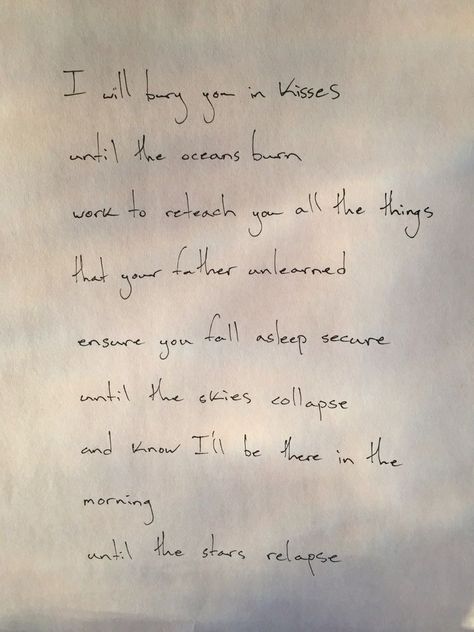 I will bury you in kisses
until the oceans burn
work to reteach you all the things
that your father unlearned
ensure you fall asleep secure
until the skies collapse
and know I'll be there in the
morning
until the stars relapse